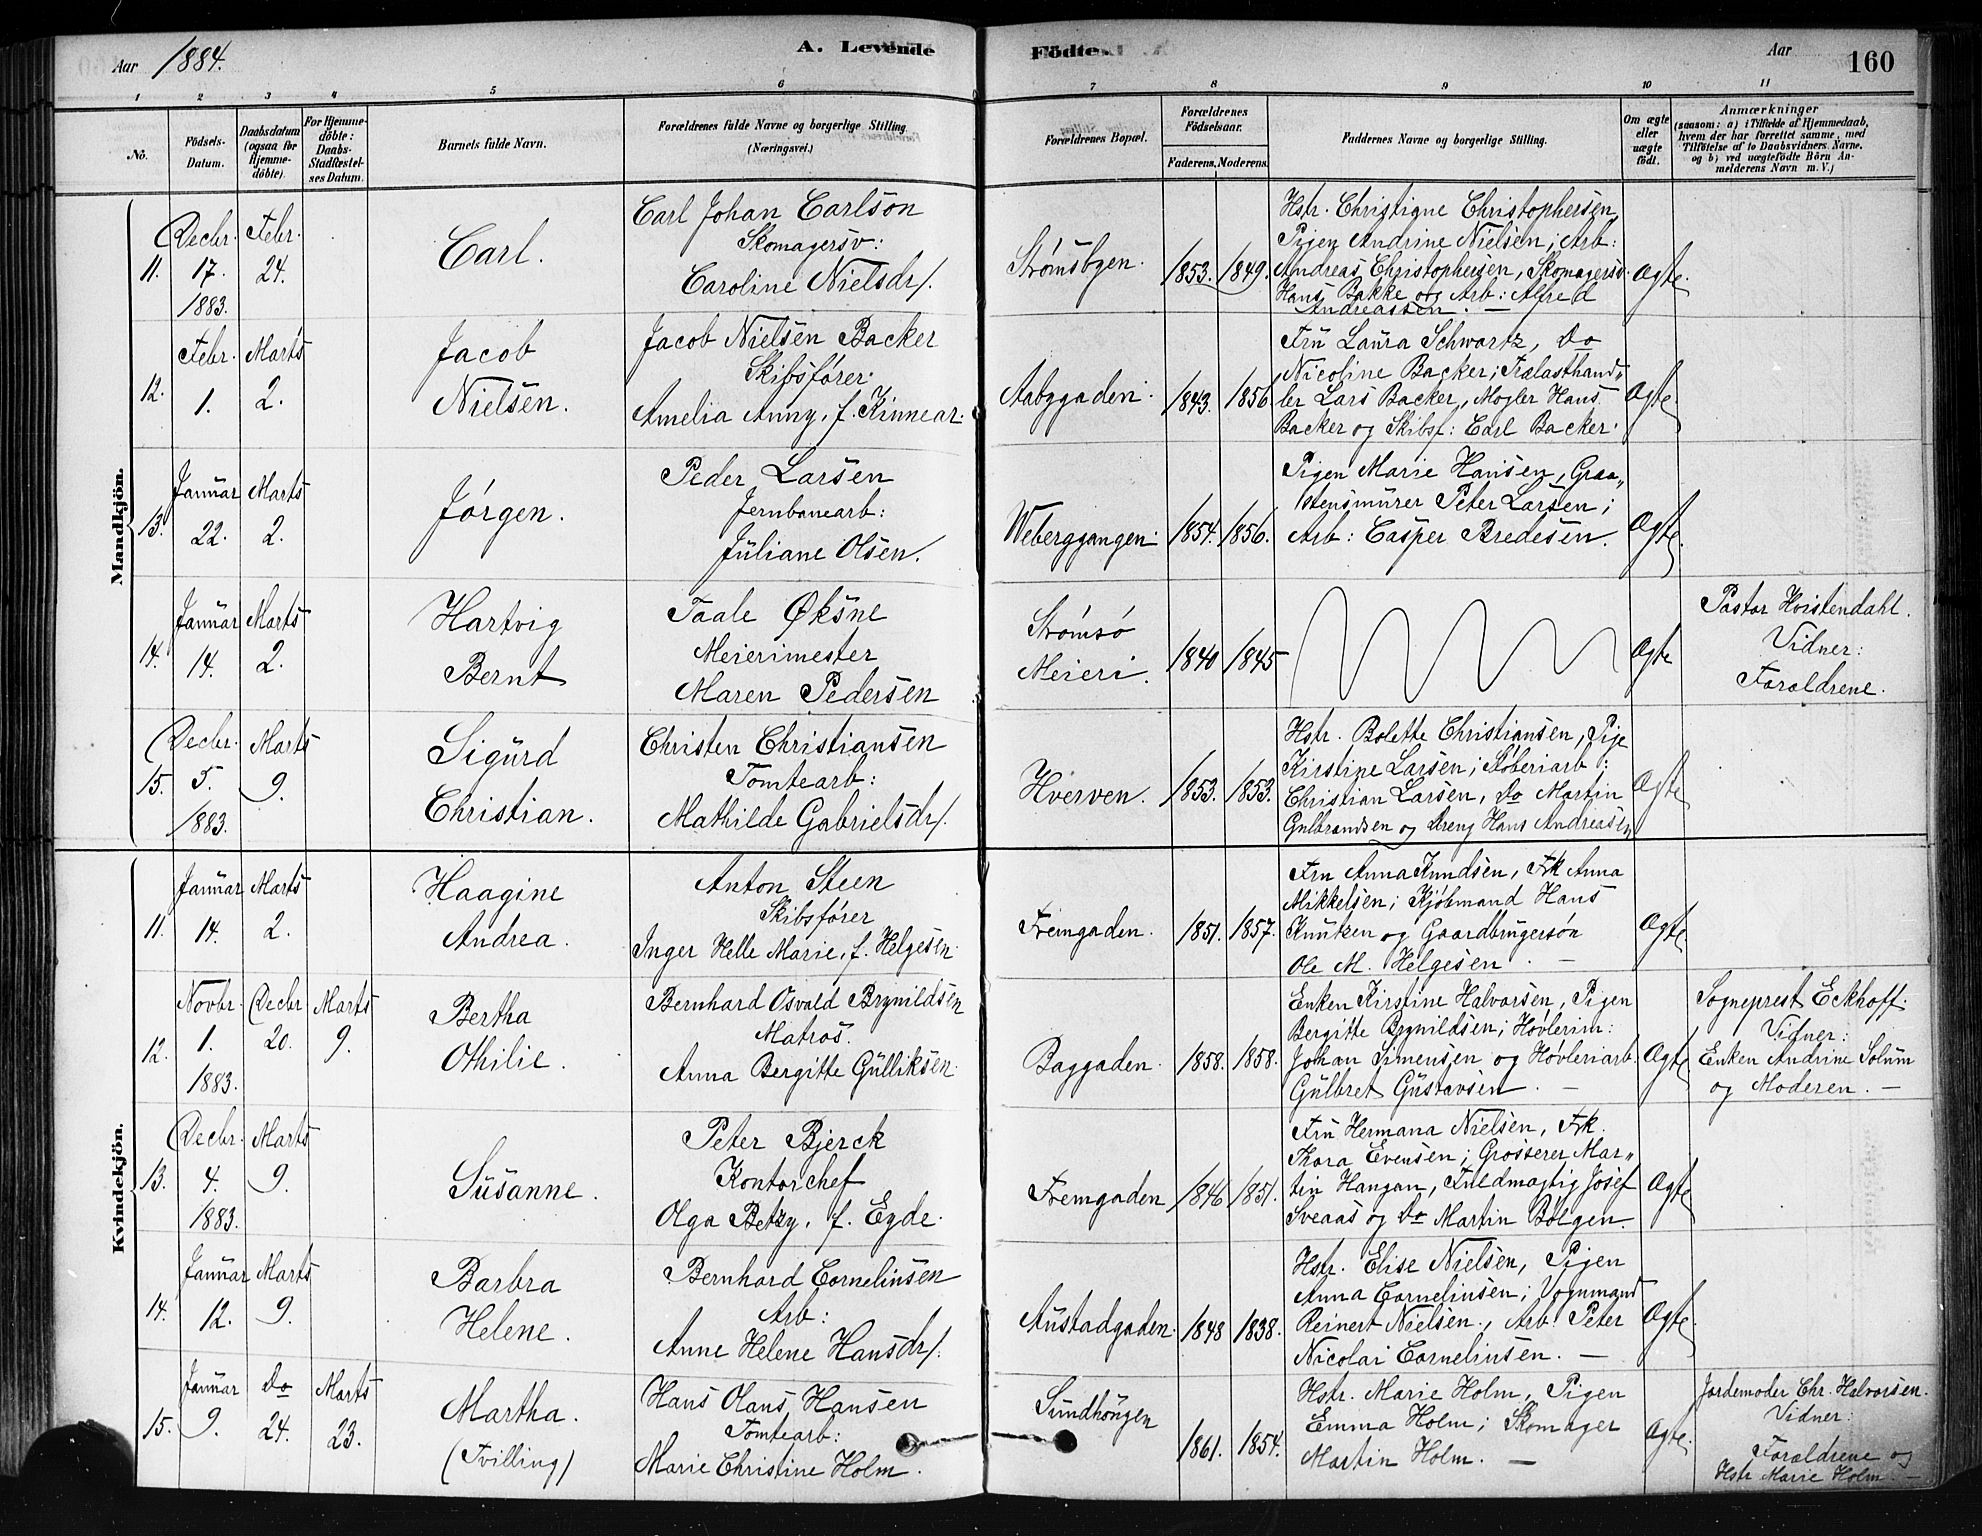 Aar 1884.
A. Levende
Födte.
Aar
160
1 2 3 4 5 6 7 8 9 10 11
No.
Födsels-
Datum.
Daabsdatum
(ogsaa for
Hjemme-
döbte).
For Hjemme-
döbte:
Daabs-
Stadfæstel-
ses Datum.
Barnets fulde Navn.
Forældrenes fulde Navne og borgerlige Stilling
(Næringsvei.)
Forældrenes Bopæl.
Forældrenes
Födselsaar.
Faderens. Moderens.
Faddernes Navne og borgerlige Stilling.
Om ægte
eller
uægte
födt.
Anmærkninger
(saasom: a) i Tilfælde af Hjemmedaab,
hvem der har forrettet samme, med
Tilföielse af to Daabsvidners Navne.
og b) ved uægtefödte Börn An-
melderens Navn m. V.)
Mandkjön.
11.
Decbr.
17.
1883.
Febr.
24.
Carl.
Carl Johan Carlson
Skomagersv:
Caroline Nielsdr/.
Strømsbyen.
1853. 1849.
Hstr. Christigne Christophersen,
Pigen Andrine Nielsen; Arb:
Andreas Christophersen, Skomagersv:
Hans Bakke og Arb: Alfred
Andreassen. —
Ægte.
12.
Febr.
1.
Marts
2.
Jacob
Nielsen.
Jacob Nielsen Backer
Skibsfører.
Amelia Anny, f. Kinnear.
Aabygaden.
1843. 1856
Fru Laura Schwartz, Do
Nicoline Backer; Trælasthand„
ler Lars Backer, Mægler Hans
Backer og Skibsf: Carl Backer.
Ægte
13.
Januar
22.
Marts
2.
Jørgen.
Peder Larsen
Jernbanearb:
Juliane Olsen/.
Weberggangen.
1854. 1856.
Pigen Marie Hansen, Graa„
stensmurer Peter Larsen;
Arb: Casper Bredesen.
Ægte.
14.
Januar
14.
Marts
2.
Hartvig
Bernt
Taale Øksne
Meierimester
Maren Pedersen
Strømsø
Meieri.
1840 1845
Ægte
Pastor Hvistendahl.
Vidner:
Forældrene.
15.
Decbr.
5.
1883.
Marts
9.
Sigurd
Christian.
Christen Christiansen
Tomtearb:
Mathilde Gabrielsdr/.
Hverven.
1853. 1853.
Hstr. Bolette Christiansen, Pige
Kirstine Larsen; Støberiarb:
Christian Larsen, Do Martin
Gulbrandsen og Dreng Hans Andreasen
Ægte
Kvindekjön.
11.
Januar
14.
Marts
2.
Haagine
Andrea.
Anton Steen
Skibsfører
Inger Helle Marie, f. Helgesen.
Fremgaden.
1851. 1857.
Fru Anna Knudsen, Frk Anna
Mikkelsen; Kjøbmand Hans
Knutzen og Gaardbrugersøn
Ole M. Helgesen. —
Ægte.
12.
Novbr.
1.
1883.
Decbr
20.
Marts
9.
Bertha
Othilie.
Bernhard Osvald Brynildsen
Matros.
Anna Bergitte Gulliksen.
Baggaden.
1858. 1858.
Enken Kirstine Halvorsen, Pigen
Bergitte Brynildsen; Høvlerim:
Johan Simensen og Høvleriarb.
Gulbret Gustavsen. —
Ægte
Sogneprest Eckhoff.
Vidner:
Enken Andrine Solum
og Moderen. —
13.
Decbr.
4.
1883.
Marts
9.
Susanne.
Peter Bjerck
Kontorchef
Olga Betzy, f. Eyde.
Fremgaden
1846 1851.
Fru Hermana Nielsen, Frk.
Thora Evensen; Grosserer Mar„
tin Haugan, Fuldmægtig Josef
Sveaas og Do Martin Bølgen.
Ægte
14.
Januar
12.
Marts
9.
Barbra
Helene.
Bernhard Corneliusen
Arb:
Anne Helene Hansdr/.
Austadgaden.
1848 1838.
Hstr. Elise Nielsen, Pigen
Anna Corneliusen; Vognmand
Reinert Nielsen, Arb. Peter
Nicolai Corneliusen. —
Ægte.
15.
Januar
9.
Do
24.
Marts
23.
Martha.
(Tvilling)
Hans Olaus Hansen
Tomtearb:
Marie Christine Holm.
Sundhaugen
1861. 1854.
Hstr. Marie Holm, Pigen
Emma Holm; Skomager
Martin Holm. —
Ægte.
Jordemoder Chr. Halvorsen.
Vidner:
Forældrene og
Hstr Marie Holm. —